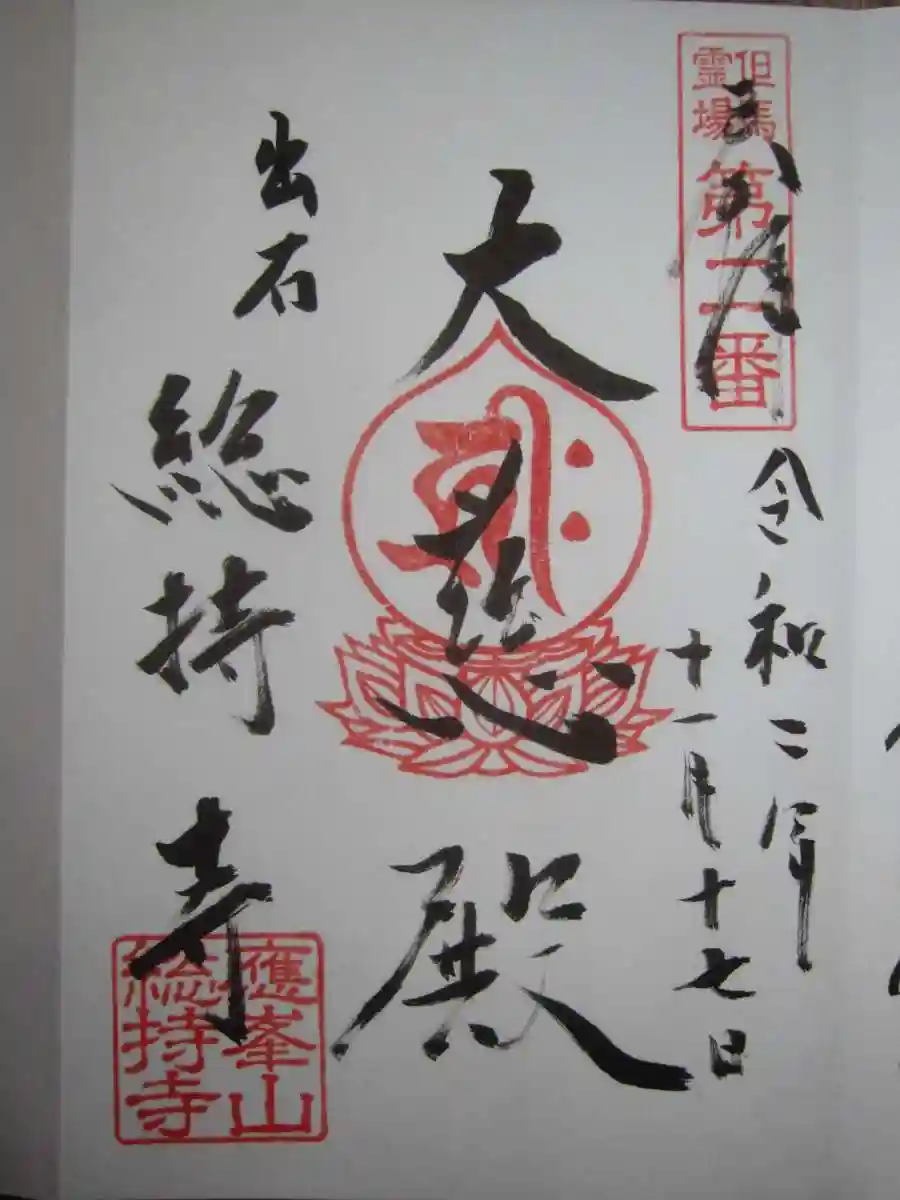 但馬
霊場
第二番
奉拝
令和二年
十一月十七日
大悲殿
出石
総持寺
應峯山
総持寺